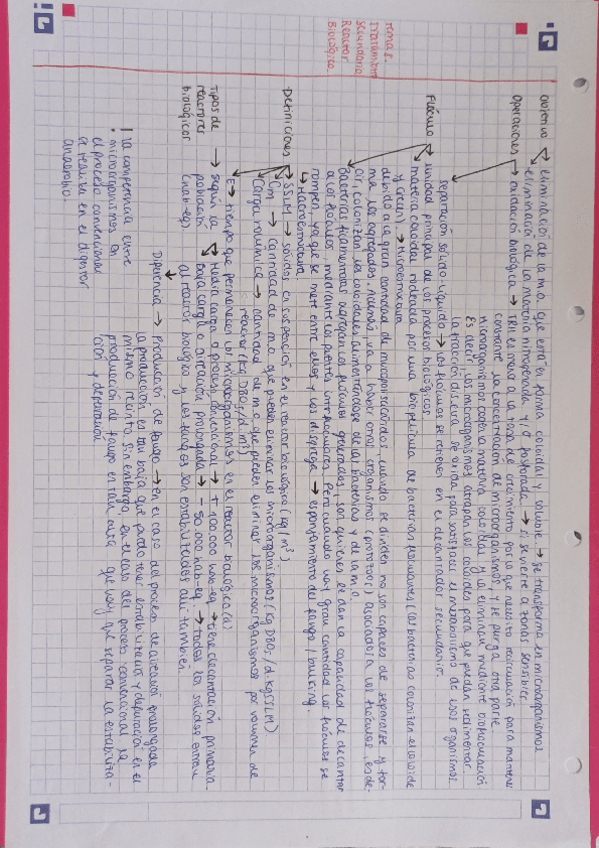 Tema 5.
Tratamiento
Secundario
Reactor
Biológico.
Objetivo → eliminación de la m.o. que está en forma coloidal y soluble → se transforma en microorganismos
eliminación de la materia nitrogenada y/o fosforada. → si se vierte a zonas sensibles.
Operaciones → oxidación biológica → TRH es menor a la tasa de crecimiento por lo que necesito recirculación para mantener
constante la concentración de microorganismos, y se purga otra parte.
Microorganismos capta la materia coloidal y la eliminan mediante biofloculación
Es decir, los microorganismos atrapan los coloides para que puedan sedimentar.
La fracción disuelta se oxida para satisfacer el metabolismo de esos organismos.
separación sólido líquido → los flóculos se retiran en el decantador secundario.
Flóculo → unidad principal de los procesos biológicos.
materia coloidal rodeada por una biopelícula de bacterias floculantes (las bacterias colonizan el coloide
y crecen). → Microestructura
debido a la gran cantidad de mucopolisacáridos, cuando se dividen no son capaces de separarse y for-
ma los agregados. Además, va a haber otros organismos (protozoos) asociados a los flóculos, es de-
cir, colonizan los coloides alimentándose de las bacterias y de la m.o.
Bacterias filamentosas agregan los flóculos generados, son quienes le dan la capacidad de decantar
a los flóculos, mediante los puentes intrafloculares. Pero cuando hay gran cantidad los flóculos se
rompen, ya que se mete entre ellos y los disgrega → esponjamiento del fango / bulking.
↳ Macroestructura.
Definiciones → SSLM → sólidos en suspensión en el reactor biológico (kg/m³)
Cm → cantidad de m.o. que pueden eliminar los microorganismos (kg DBO₅/d·kg SSLM)
Carga volúmica → cantidad de m.o. que pueden eliminar los microorganismos por volumen de
reactor (kg DBO₅/d·m³)
E → tiempo que permanecen los microorganismos en el reactor biológico (d)
Tipos de → según la → Media carga o proceso convencional → + 100.000 hab-eq. → tiene decantación primaria.
reactores población Baja carga o aireación prolongada → - 50.000 hab-eq. → todos los sólidos entran
biológicos (hab-eq). al reactor biológico y los fangos son estabilizados allí también.
Diferencia → Producción de fango → en el caso del proceso de aireación prolongada
la producción es tan baja que puedo tener estabilización y depuración en el
mismo recinto. Sin embargo, en el caso del proceso convencional la
producción de fango es tan alta que hay que separar la estabiliza-
ción y depuración
! La competencia entre
microorganismos en
el proceso convencional
se realiza en el digestor
anaerobio.